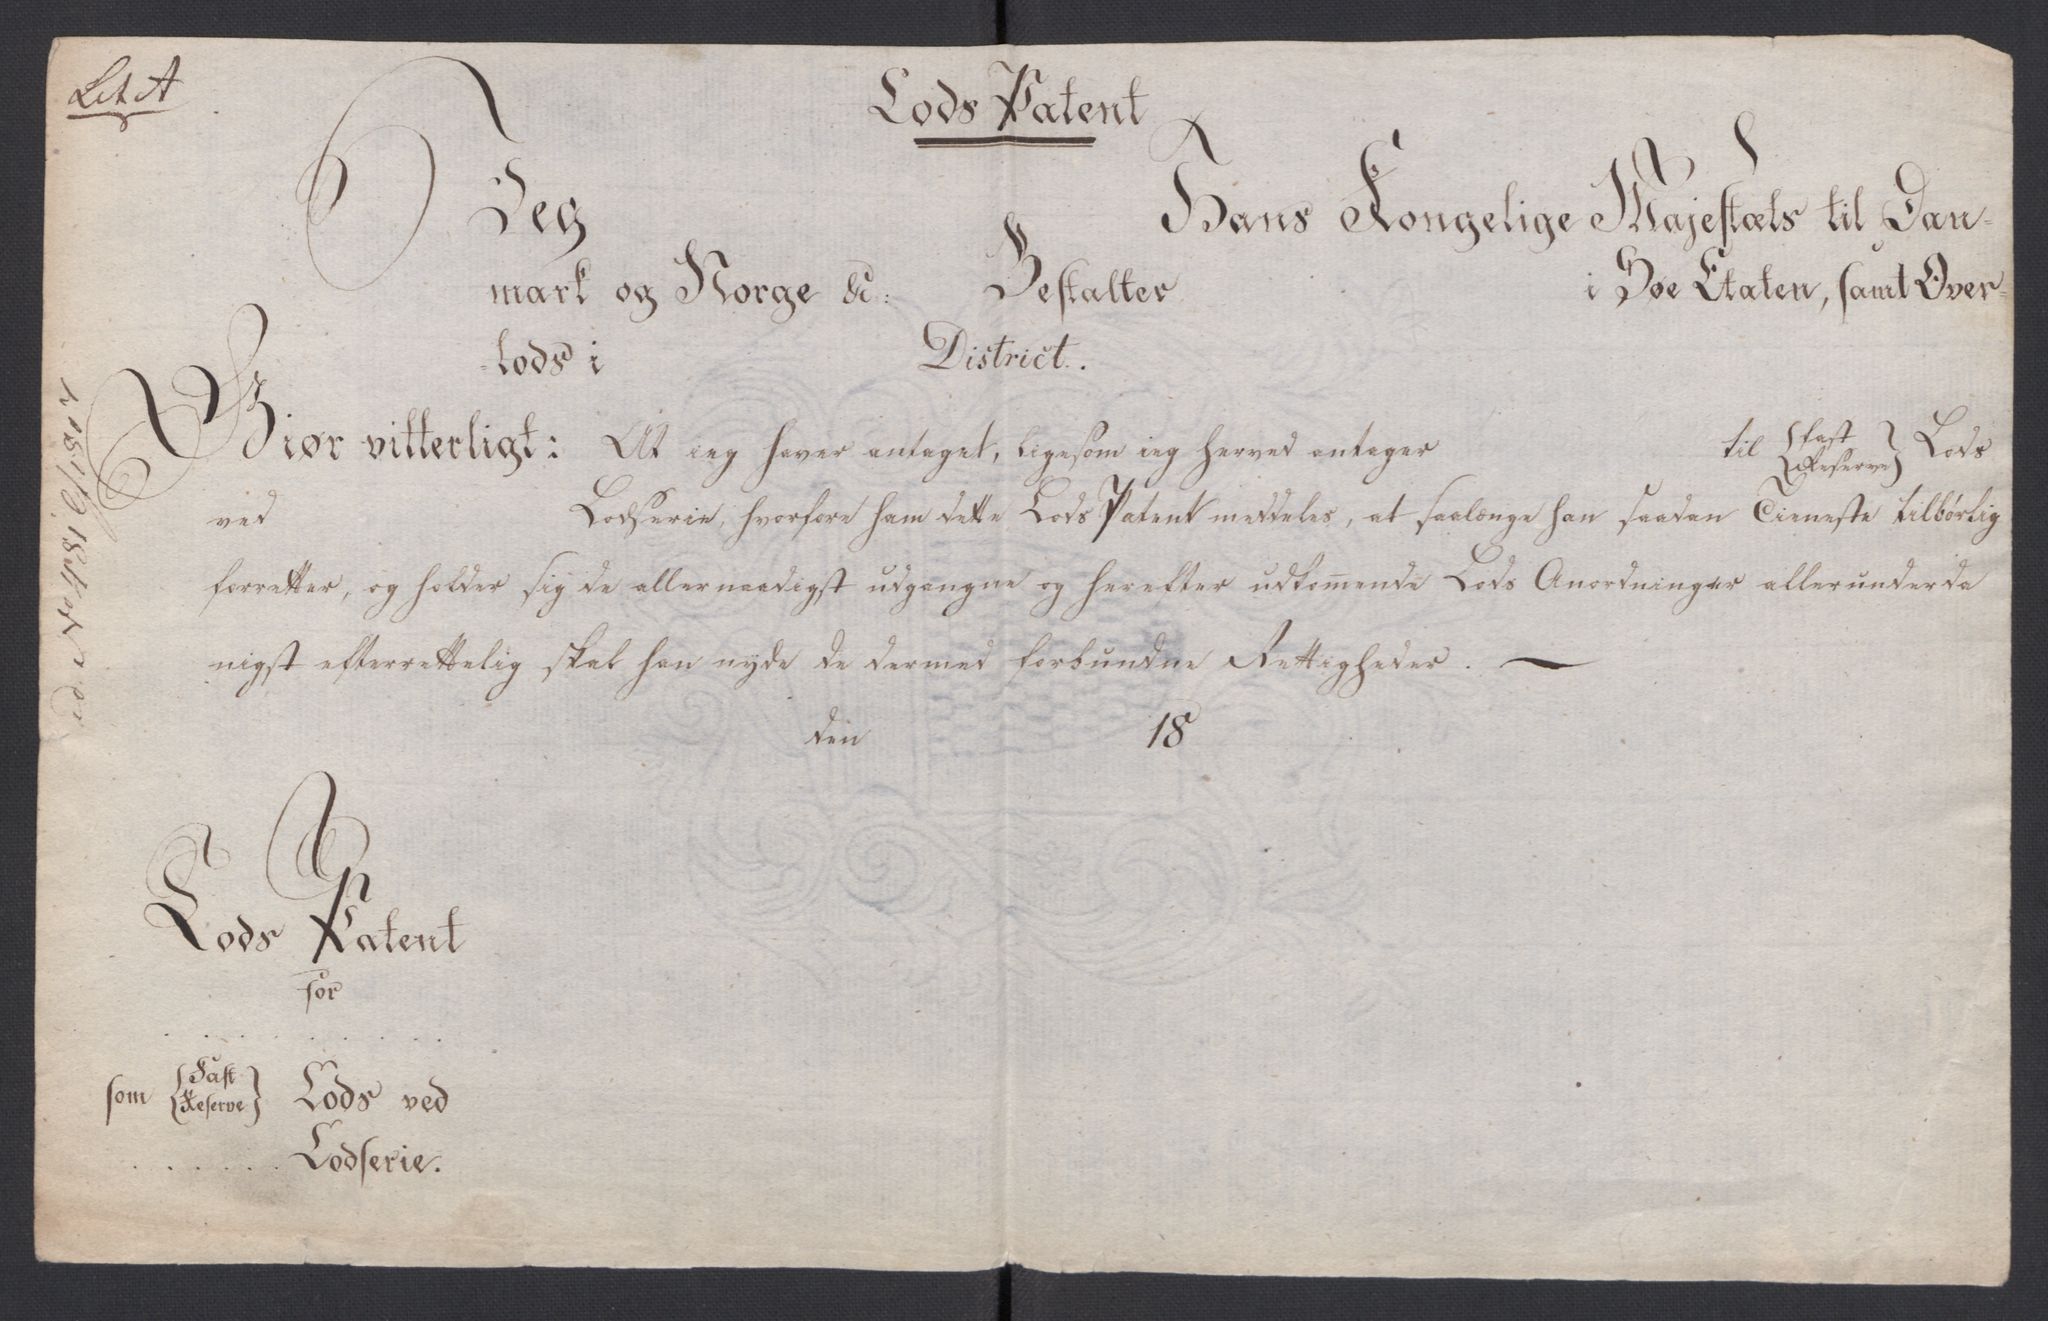 Lit A
Lods Patent
Jeg Hans Kongelige Majestæts til Dan-
mark og Norge &c: Bestalter i Søe Etaten, samt Over-
-lods i District.
Giør vitterligt: At ieg haver antaget, ligesom ieg herved antager til {Fast Reserve} Lods
ved Lodserie, hvorfore ham dette Lods Patent meddeles, at saalænge han saadan Tieneste tilbørlig
forretter, og holder sig de allernaadigst udgangne og herefter udkommende Lods Anordninger allerunderda
nigst efterrettelig skal han nyde de dermed forbundne Rettigheder.
den 18
Lods Patent
for
. . . . . . . . .
som {Fast Reserve} Lods ved
. . . . . . Lodserie.